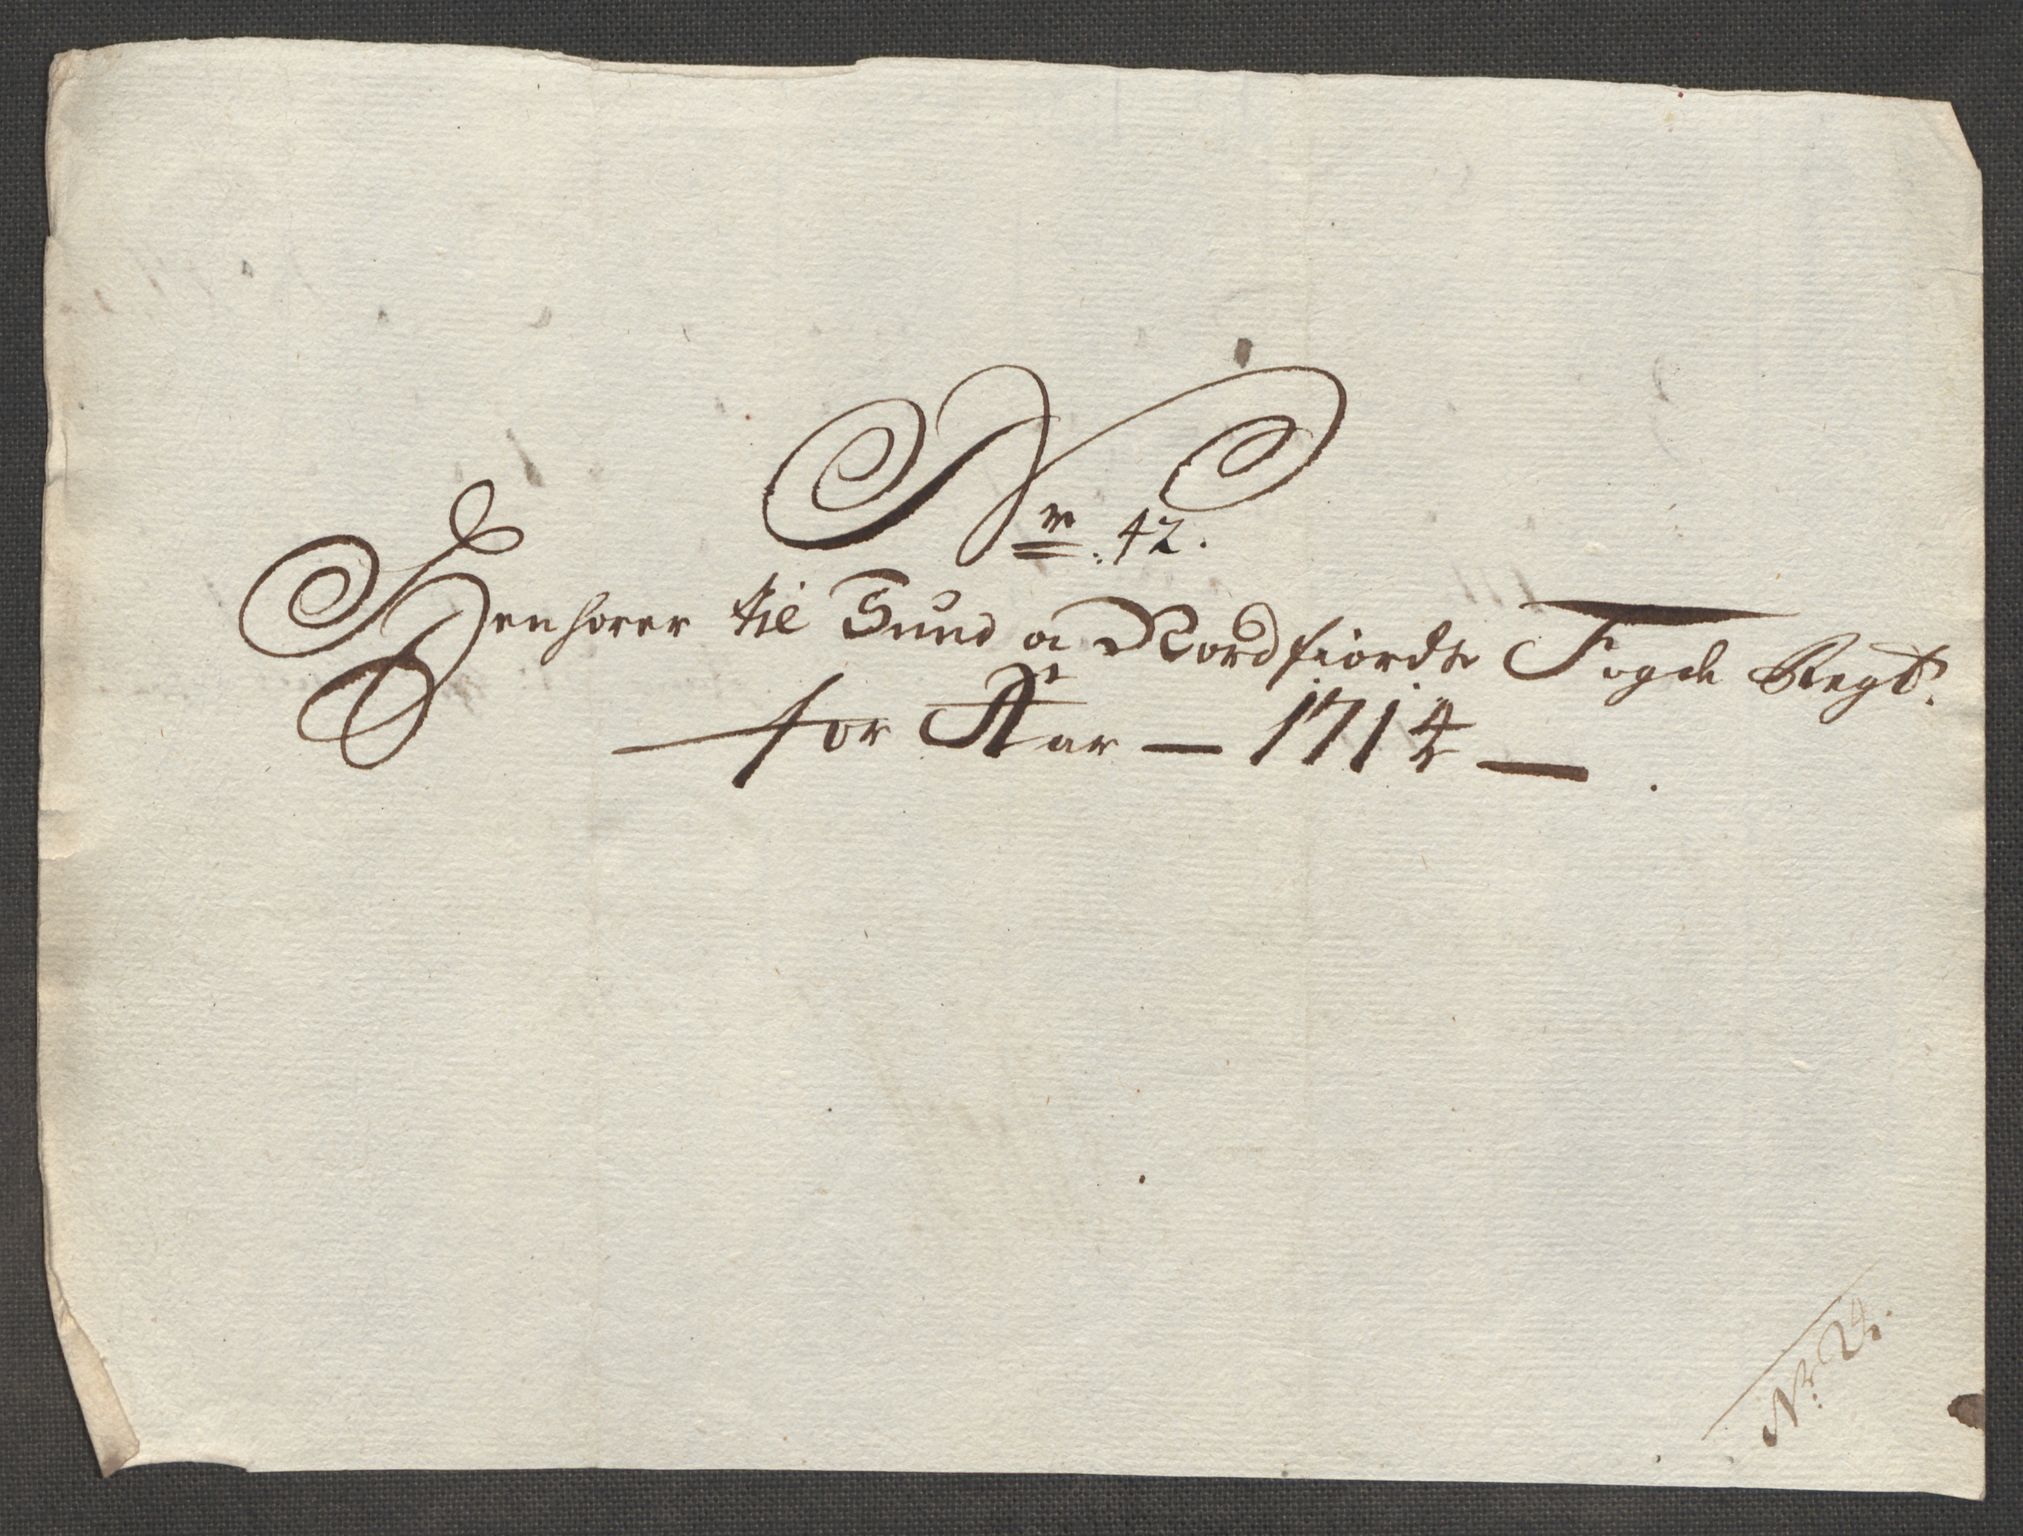 Nr. 42.
Henhører til Sund og Nordfiords Fogde Regt.
for Aar — 1714 —
Nr. 24.